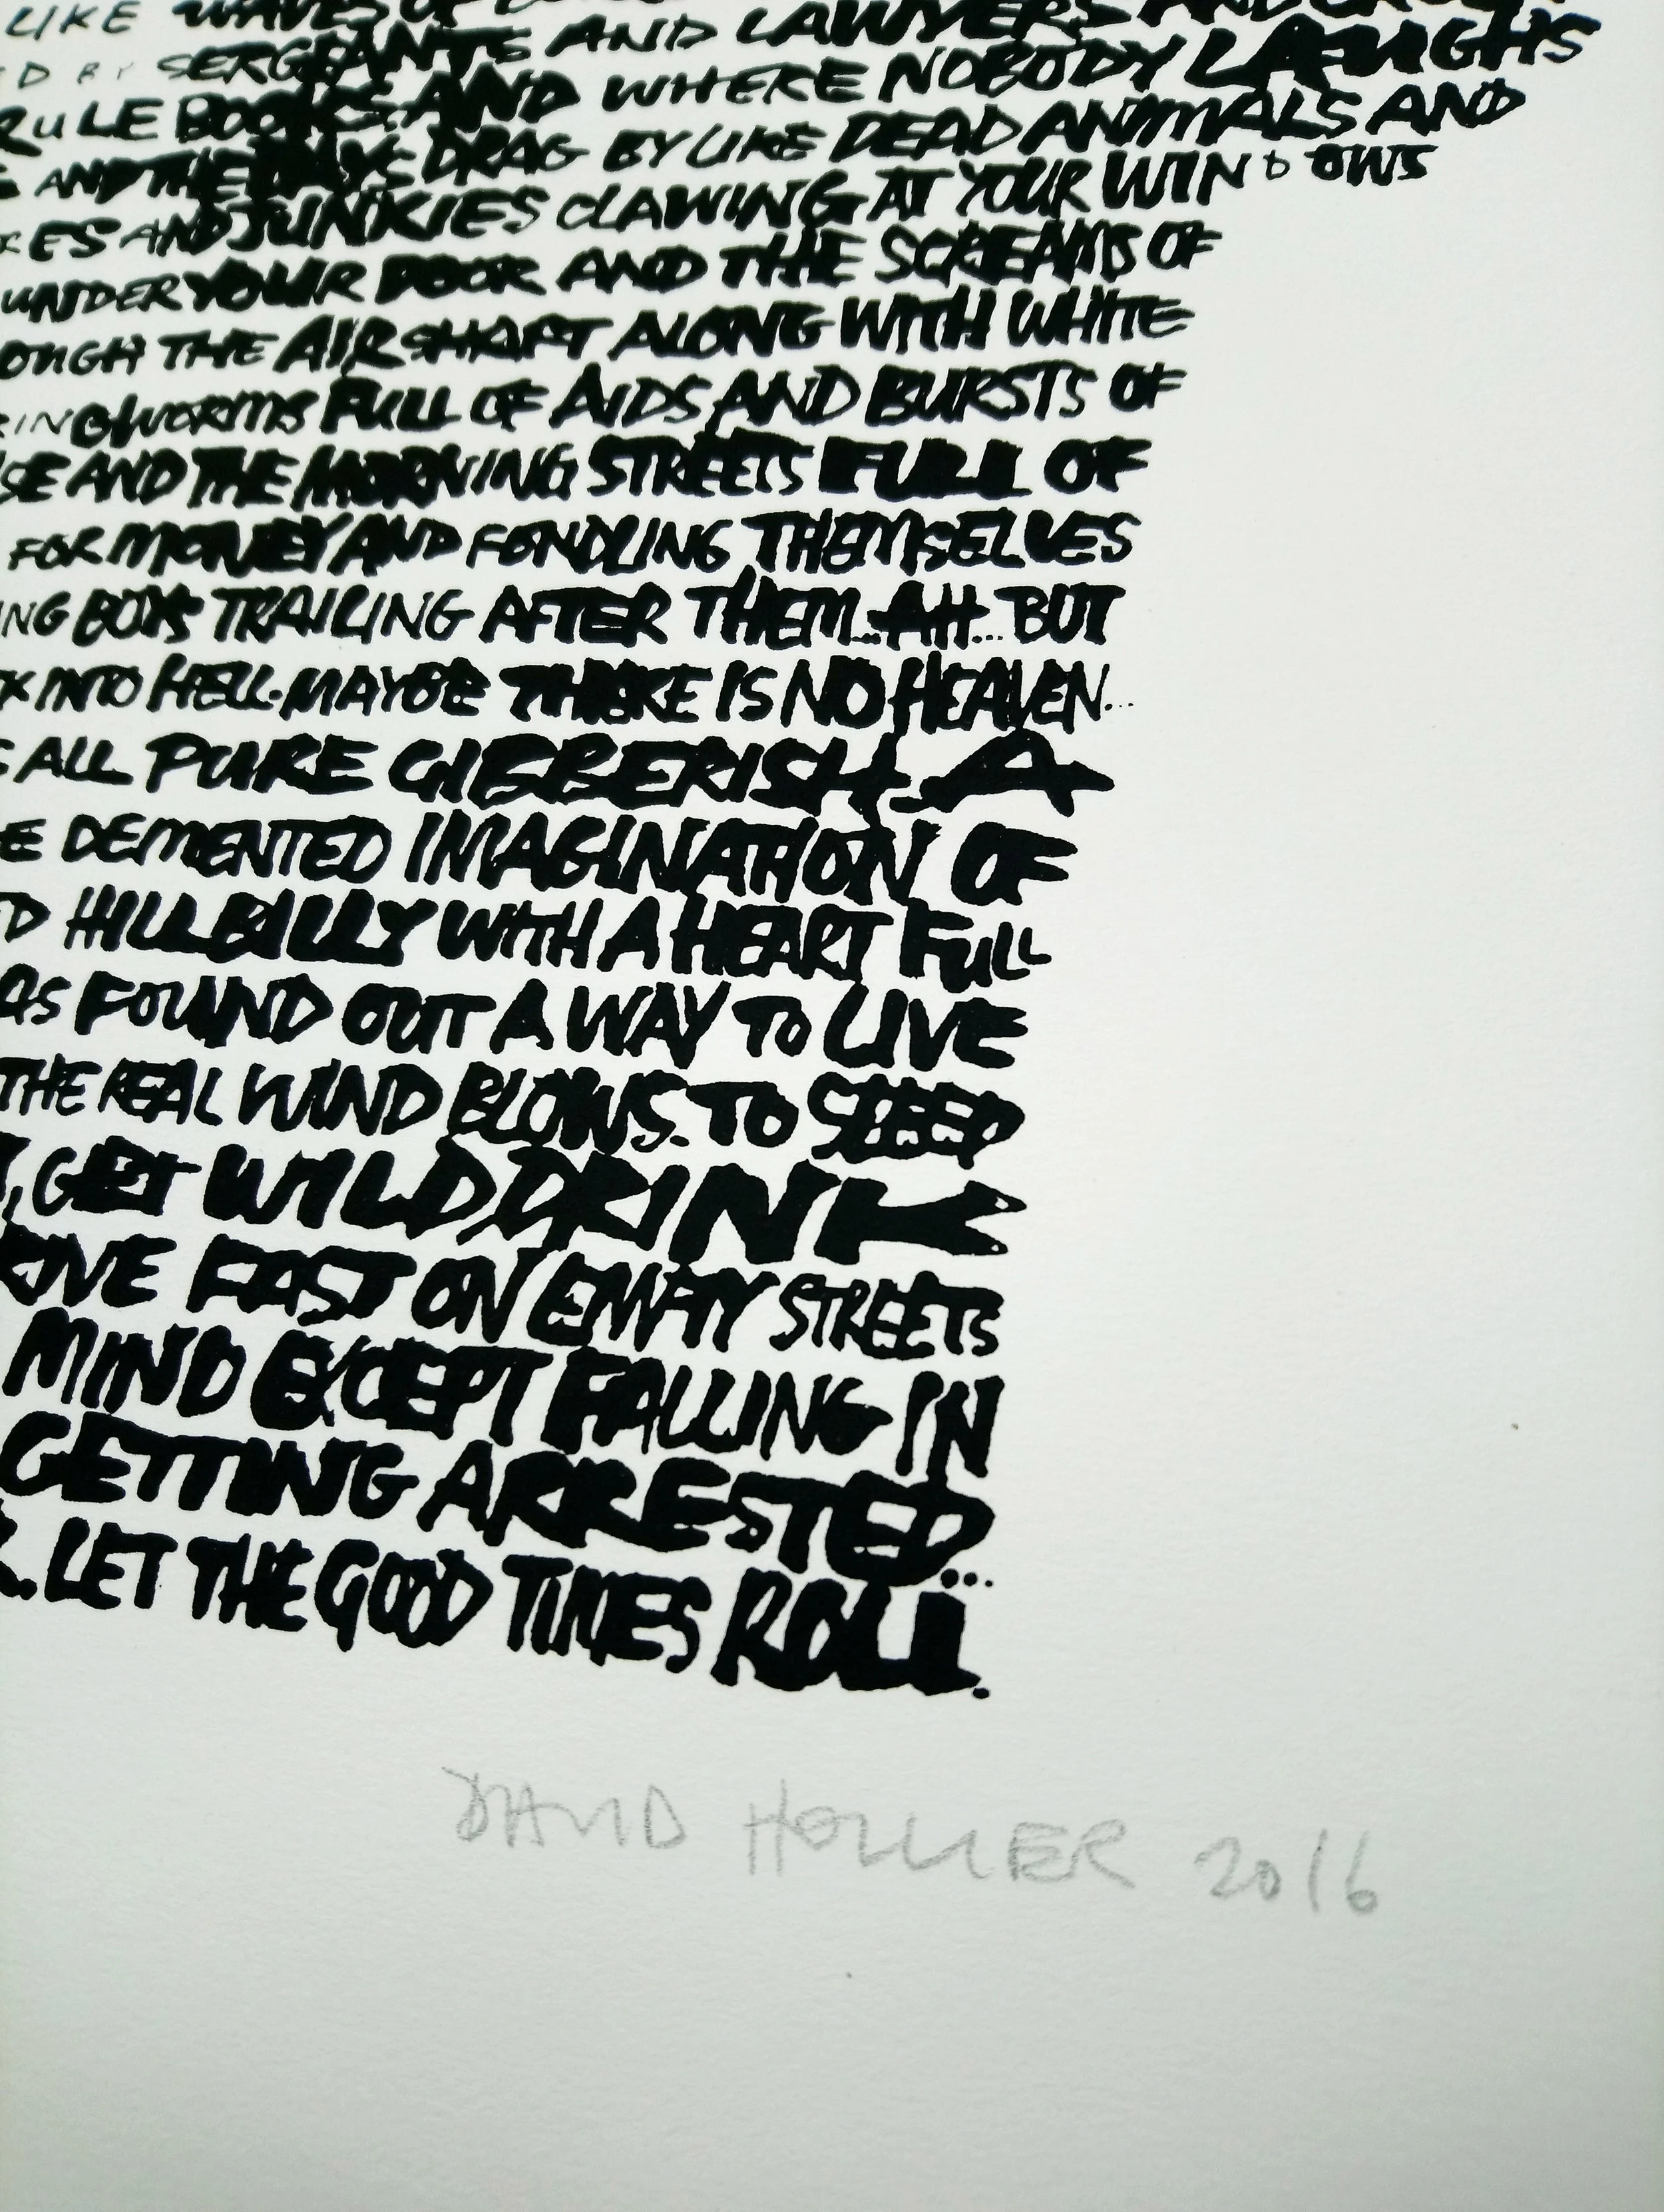 LIKE WAVES OF
SERGEANTS AND LAWYERS AND
RULE BOOKS AND WHERE NOBODY LAUGHS
AND THE DAYS DRAG BY LIKE DEAD ANIMALS AND
KES AND JUNKIES CLAWING AT YOUR WINDOWS
UNDER YOUR DOOR AND THE SCREAMS OF
OUGH THE AIR SHAFT ALONG WITH WHITE
RINGWORMS FULL OF AIDS AND BURSTS OF
SE AND THE MORNING STREETS FULL OF
FOR MONEY AND FONDLING THEMSELVES
NG BOYS TRAILING AFTER THEM...AH...BUT
X INTO HELL. MAYBE THERE IS NO HEAVEN...
ALL PURE GIBBERISH A
E DEMENTED IMAGINATION OF
D HILLBILLY WITH A HEART FULL
AS FOUND OUT A WAY TO LIVE
THE REAL WIND BLOWS. TO SLEEP
, GET WILD, DRINK
RIVE FAST ON EMPTY STREETS
MIND EXCEPT FALLING IN
GETTING ARRESTED...
R. LET THE GOOD TIMES ROLL.
DAVID HOLLIER 2016